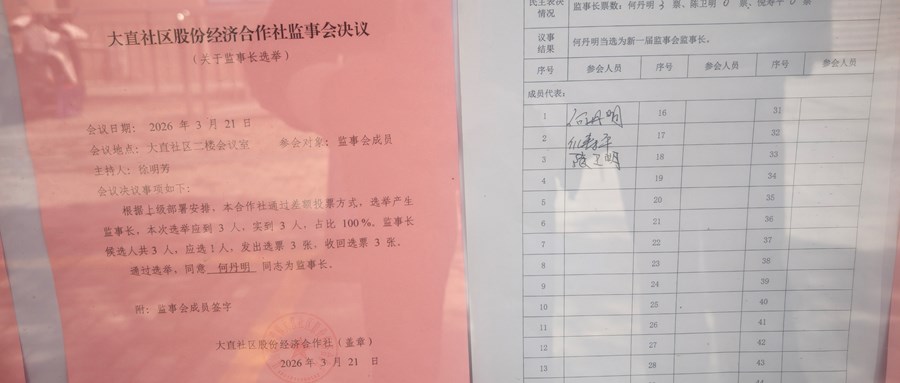 大直社区股份经济合作社监事会决议
（关于监事长选举）
会议日期：2026 年 3 月 21 日
会议地点：大直社区二楼会议室 参会对象：监事会成员
主持人：徐明芳
会议决议事项如下：
根据上级部署安排，本合作社通过差额投票方式，选举产生
监事长，本次选举应到 3 人，实到 3 人，占比 100%。监事长
候选人共 3 人，应选 1 人，发出选票 3 张，收回选票 3 张。
通过选举，同意 何丹明 同志为监事长。
附：监事会成员签字
大直社区股份经济合作社（盖章）
2026 年 3 月 21 日
民主表决
情况
监事长票数：何丹明 3 票、陈卫明 0 票、倪寿平 0 票
议事
结果
何丹明当选为新一届监事会监事长。
序号 参会人员 序号 参会人员 序号 参会人员
成员代表：
1 何丹明 16 31
2 倪寿平 17 32
3 陈卫明 18 33
4 19 34
5 20 35
6 21 36
7 22 37
8 23 38
9 24 39
10 25 40
11 26 41
12 27 42
13 28 43
44